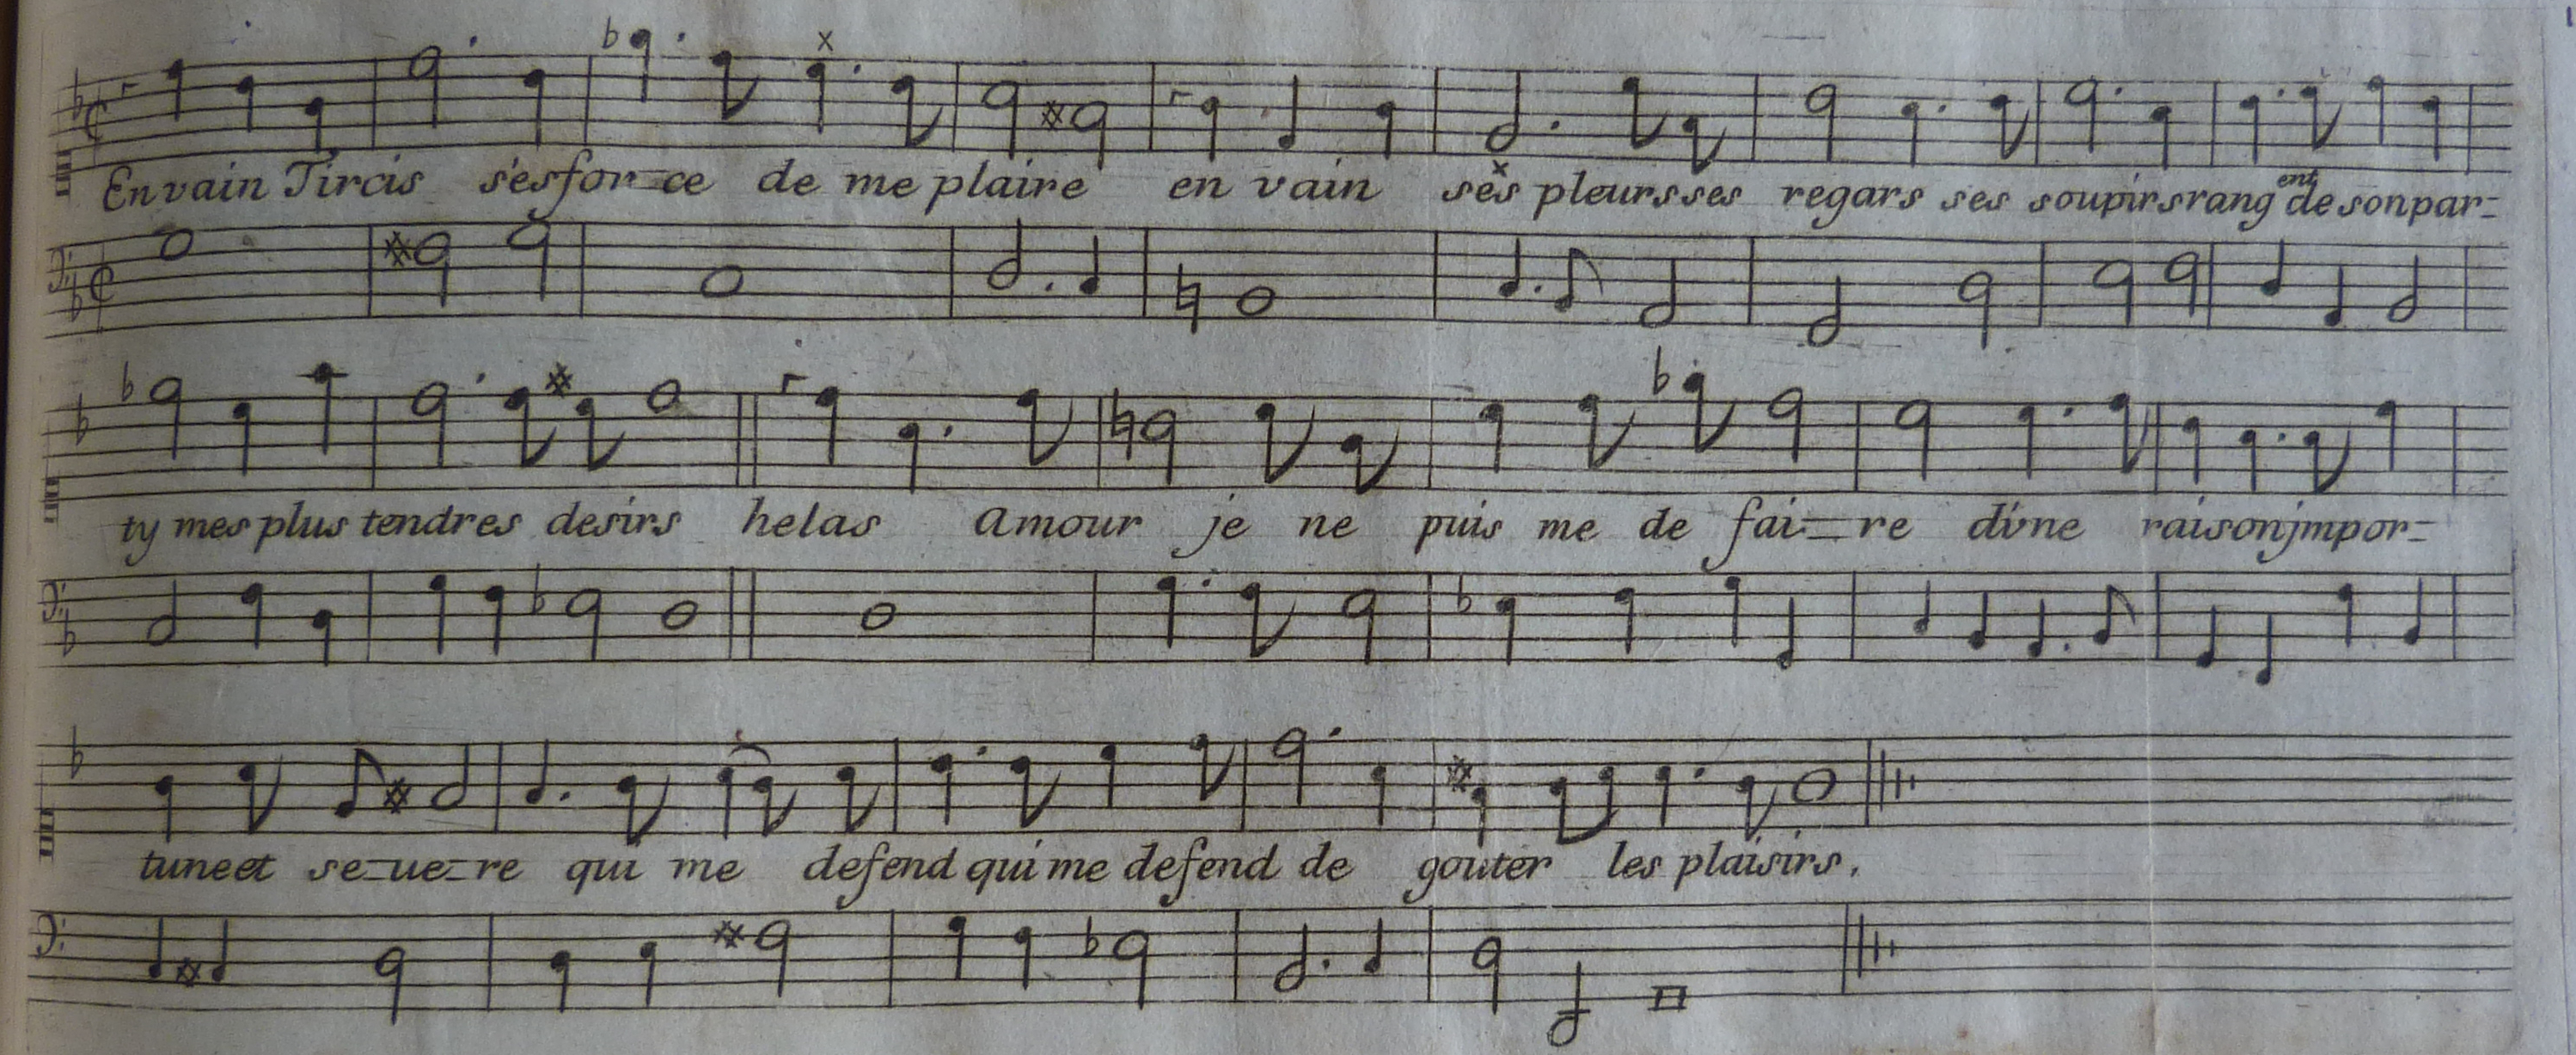 En vain Tircis s'esfor-ce de me plaire en vain ses pleurs ses regars ses soupirs rangent de son par-
ty mes plus tendres desirs helas Amour je ne puis me de fai-re d'vne raison jmpor-
tune et se-ue-re qui me defend qui me defend de gouter les plaisirs.